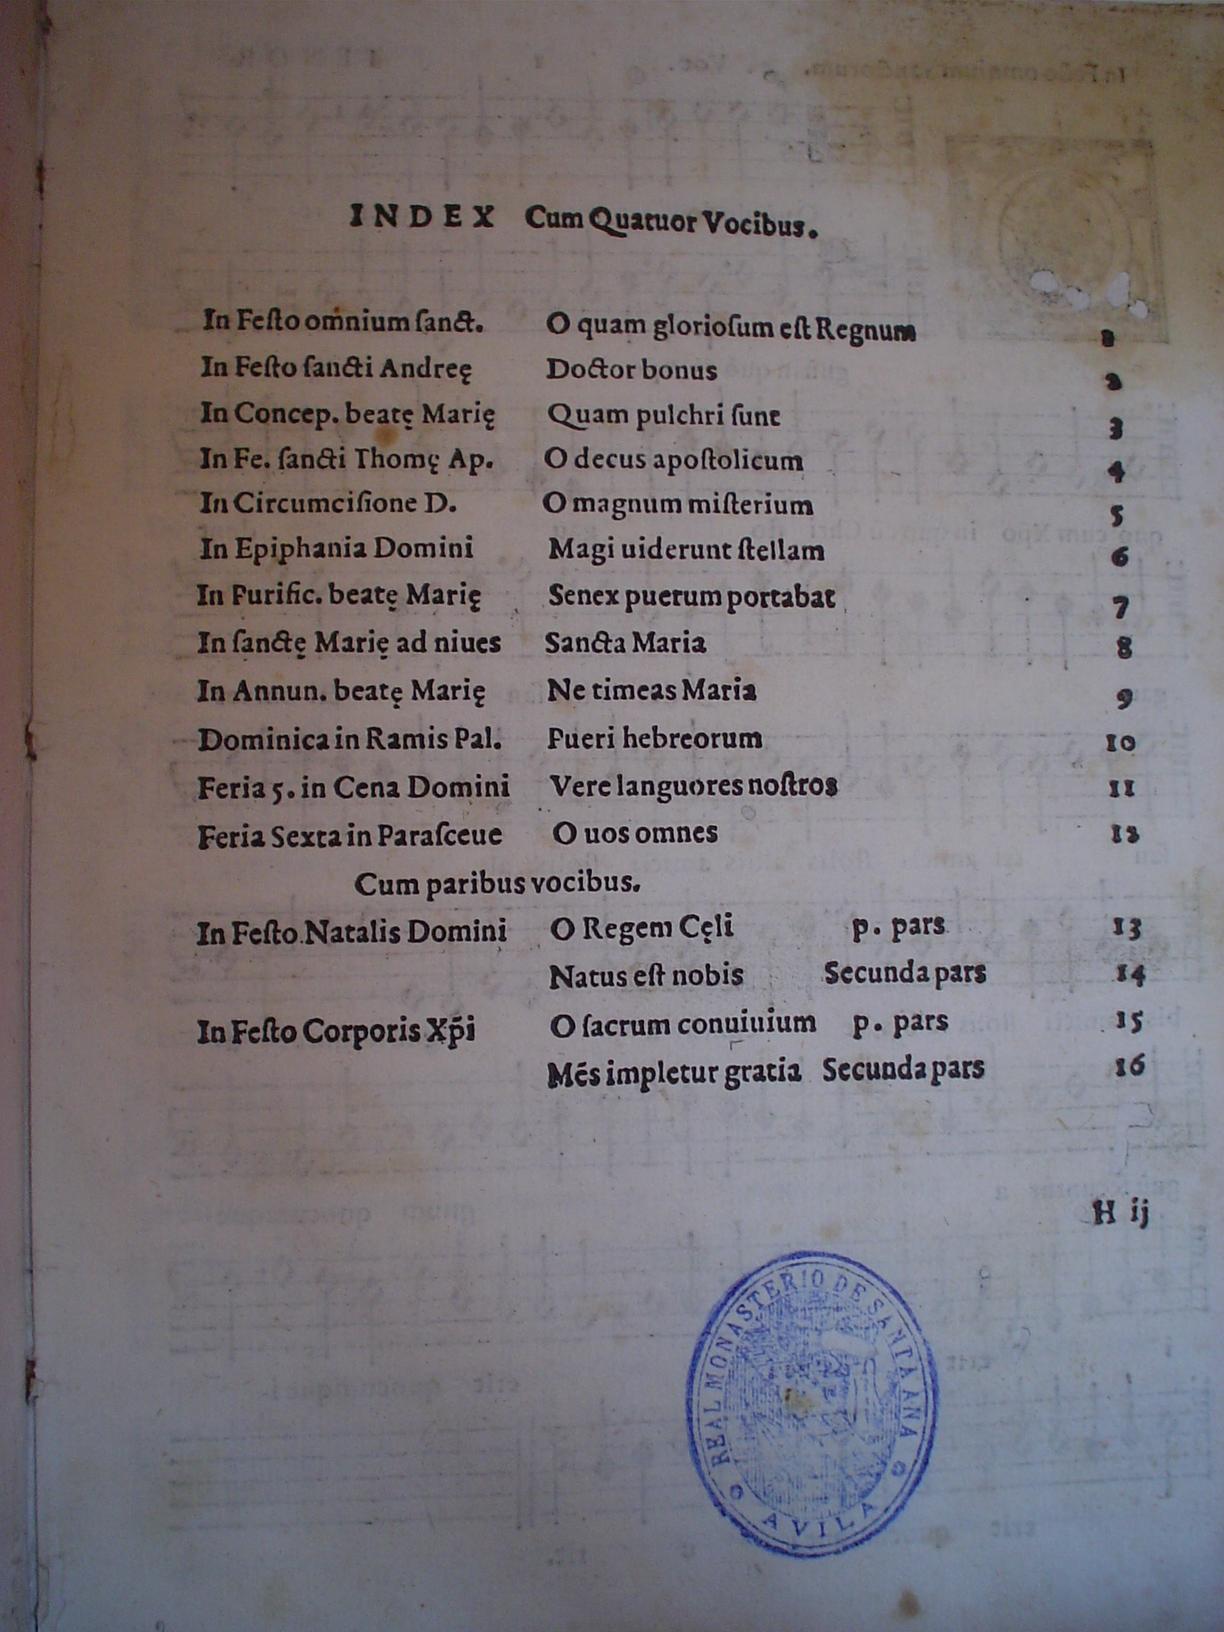 INDEX Cum Quatuor Vocibus.
In Feſto omnium ſanct. O quam glorioſum eſt Regnum 1
In Feſto ſancti Andreę Doctor bonus 2
In Concep. beatę Marię Quam pulchri ſunt 3
In Fe. ſancti Thomę Ap. O decus apoſtolicum 4
In Circumciſione D. O magnum miſterium 5
In Epiphania Domini Magi uiderunt ſtellam 6
In Purific. beatę Marię Senex puerum portabat 7
In ſanctę Marię ad niues Sancta Maria 8
In Annun. beatę Marię Ne timeas Maria 9
Dominica in Ramis Pal. Pueri hebreorum 10
Feria 5. in Cena Domini Vere languores noſtros 11
Feria Sexta in Paraſceue O uos omnes 12
Cum paribus vocibus.
In Feſto Natalis Domini O Regem Cęli p. pars 13
Natus eſt nobis Secunda pars 14
In Feſto Corporis Xp̃i O ſacrum conuiuium p. pars 15
Mẽs impletur gratia Secunda pars 16
H ij
REAL MONASTERIO DE SANTA ANA
AVILA